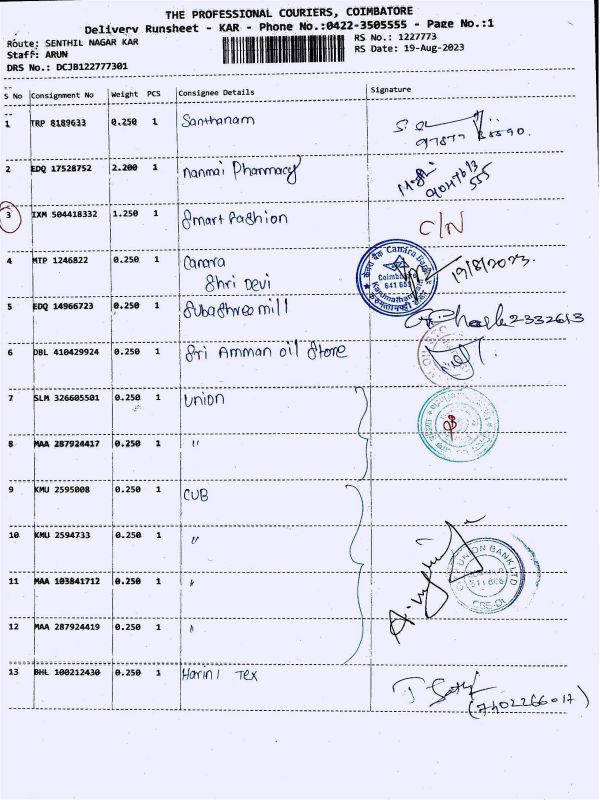 THE PROFESSIONAL COURIERS, COIMBATORE
Delivery Runsheet - KAR - Phone No.:0422-3505555 - Page No.:1
Route: SENTHIL NAGAR KAR
RS No.: 1227773
Staff: ARUN
RS Date: 19-Aug-2023
DRS No.: DCJB122777301
S No Consignment No Weight PCS Consignee Details Signature
1 TRP 8189633 0.250 1 Santhanam
2 EDQ 17528752 2.200 1 Nanmai Pharmacy
3 IXM 504418332 1.250 1 Smart Fashion C/N
4 MTP 1246822 0.250 1 Canara 19/8/2023.
Shri Devi
5 EDQ 14966723 0.250 1 Subashree mill
6 DBL 410429924 0.250 1 Sri Amman oil Store
7 SLM 326605501 0.250 1 Union
8 MAA 287924417 0.250 1 "
9 KMU 2595008 0.250 1 CUB
10 KMU 2594733 0.250 1 "
11 MAA 103841712 0.250 1 "
12 MAA 287924419 0.250 1 "
13 BHL 100212430 0.250 1 Harini Tex
(7402266017)
Canara Bank
Coimbatore
UNION BANK LTD
CBE-DI